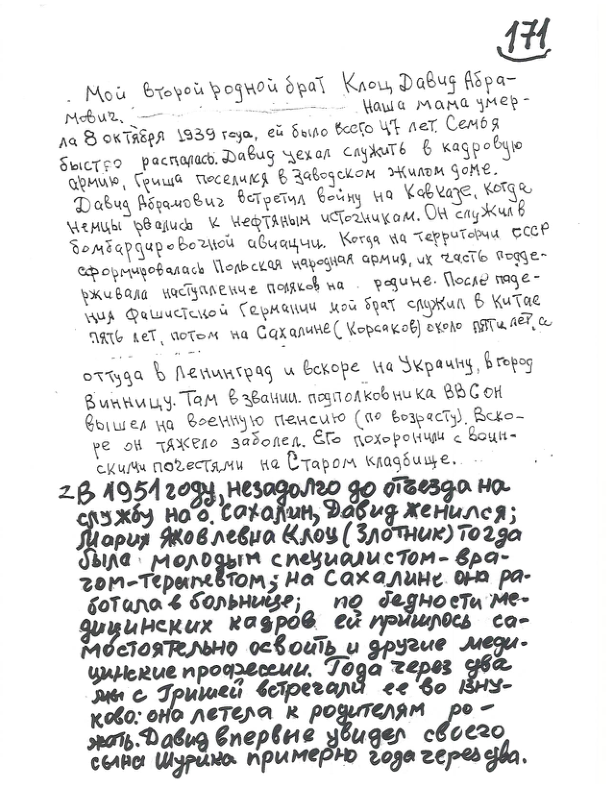 171
Мой второй родной брат Клоц Давид Абра-
мович. Наша мама умер-
ла 8 октября 1939 года, ей было всего 47 лет. Семья
быстро распалась. Давид уехал служить в кадровую
армию, Гриша поселился в заводском жилом доме.
Давид Абрамович встретил войну на Кавказе, когда
немцы рвались к нефтяным источникам. Он служил в
бомбардировочной авиации. Когда на территории СССР
сформировалась Польская народная армия, их часть подде-
рживала наступление поляков на родине. После паде-
ния фашистской Германии мой брат служил в Китае
пять лет, потом на Сахалине (Корсаков) около пяти лет, а
оттуда в Ленинград и вскоре на Украину, в город
Винницу. Там в звании подполковника ВВС он
вышел на военную пенсию (по возрасту). Вско-
ре он тяжело заболел. Его похоронили с воин-
скими почестями на Старом кладбище.
В 1951 году, незадолго до отъезда на
службу на о. Сахалин, Давид женился;
Мария Яковлевна Клоц (Злотник) тогда
была молодым специалистом-вра-
чом-терапевтом; на Сахалине она ра-
ботала в больнице; по бедности ме-
дицинских кадров ей пришлось са-
мостоятельно освоить и другие меди-
цинские профессии. Года через два
мы с Гришей встречали ее во Вну-
ково: она летела к родителям ро-
жать. Давид впервые увидел своего
сына Шурика примерно года через два.